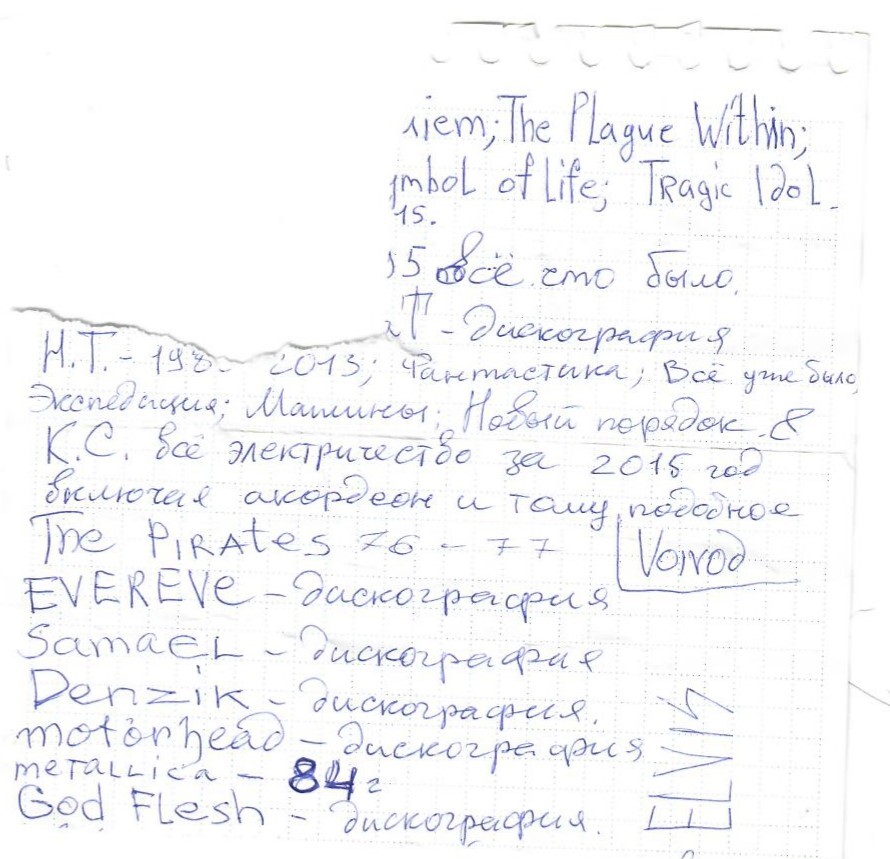 The Plague Within;
of Life; Tragic Idol.
15.
5 всё что было.
Т - дискография
Н.Т. - 198 2013; Фантастика; Всё уже было,
Экспедиция; Машины; Новый порядок.
К.С. всё электричество за 2015 год
включая акордеон и тому подобное
The PIRAtes 76 - 77
Voivod
EVEREVE - дискография
SamaEL - дискография
Denzik - дискография.
motörhead - дискография
metaLLica - 84 г
God Flesh - дискография.
ELVIS